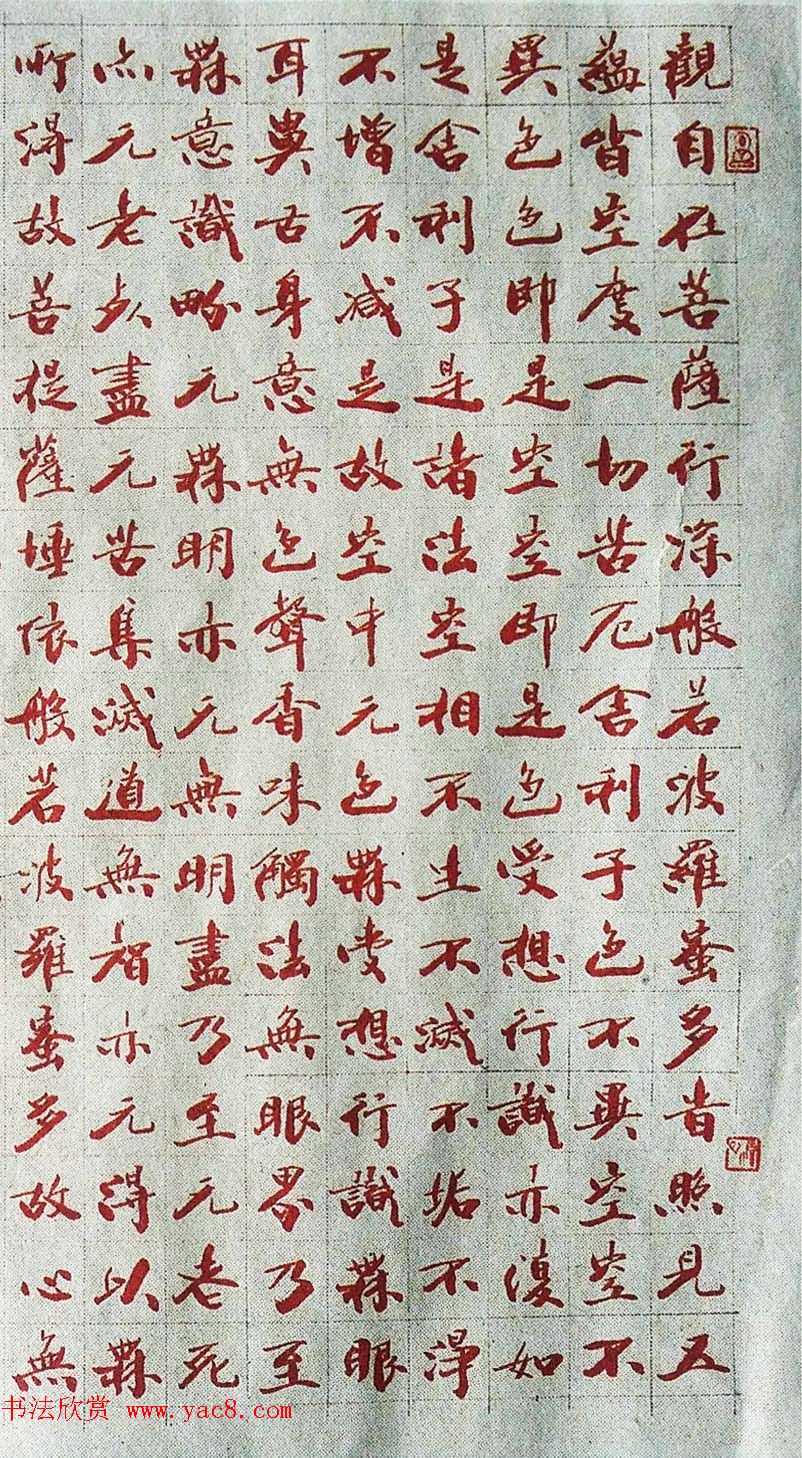 觀自在菩薩行深般若波羅蜜多旹照見五
蘊皆空度一切苦厄舍利子色不異空空不
異色色即是空空即是色受想行識亦復如
是舍利子是諸法空相不生不滅不垢不淨
不增不减是故空中无色無受想行識無眼
耳鼻舌身意無色聲香味觸法無眼界乃至
無意識界无無明亦无無明盡乃至无老死
亦无老死盡无苦集滅道無智亦无得以無
所得故菩提薩埵依般若波羅蜜多故心無
书法欣赏 www.yac8.com